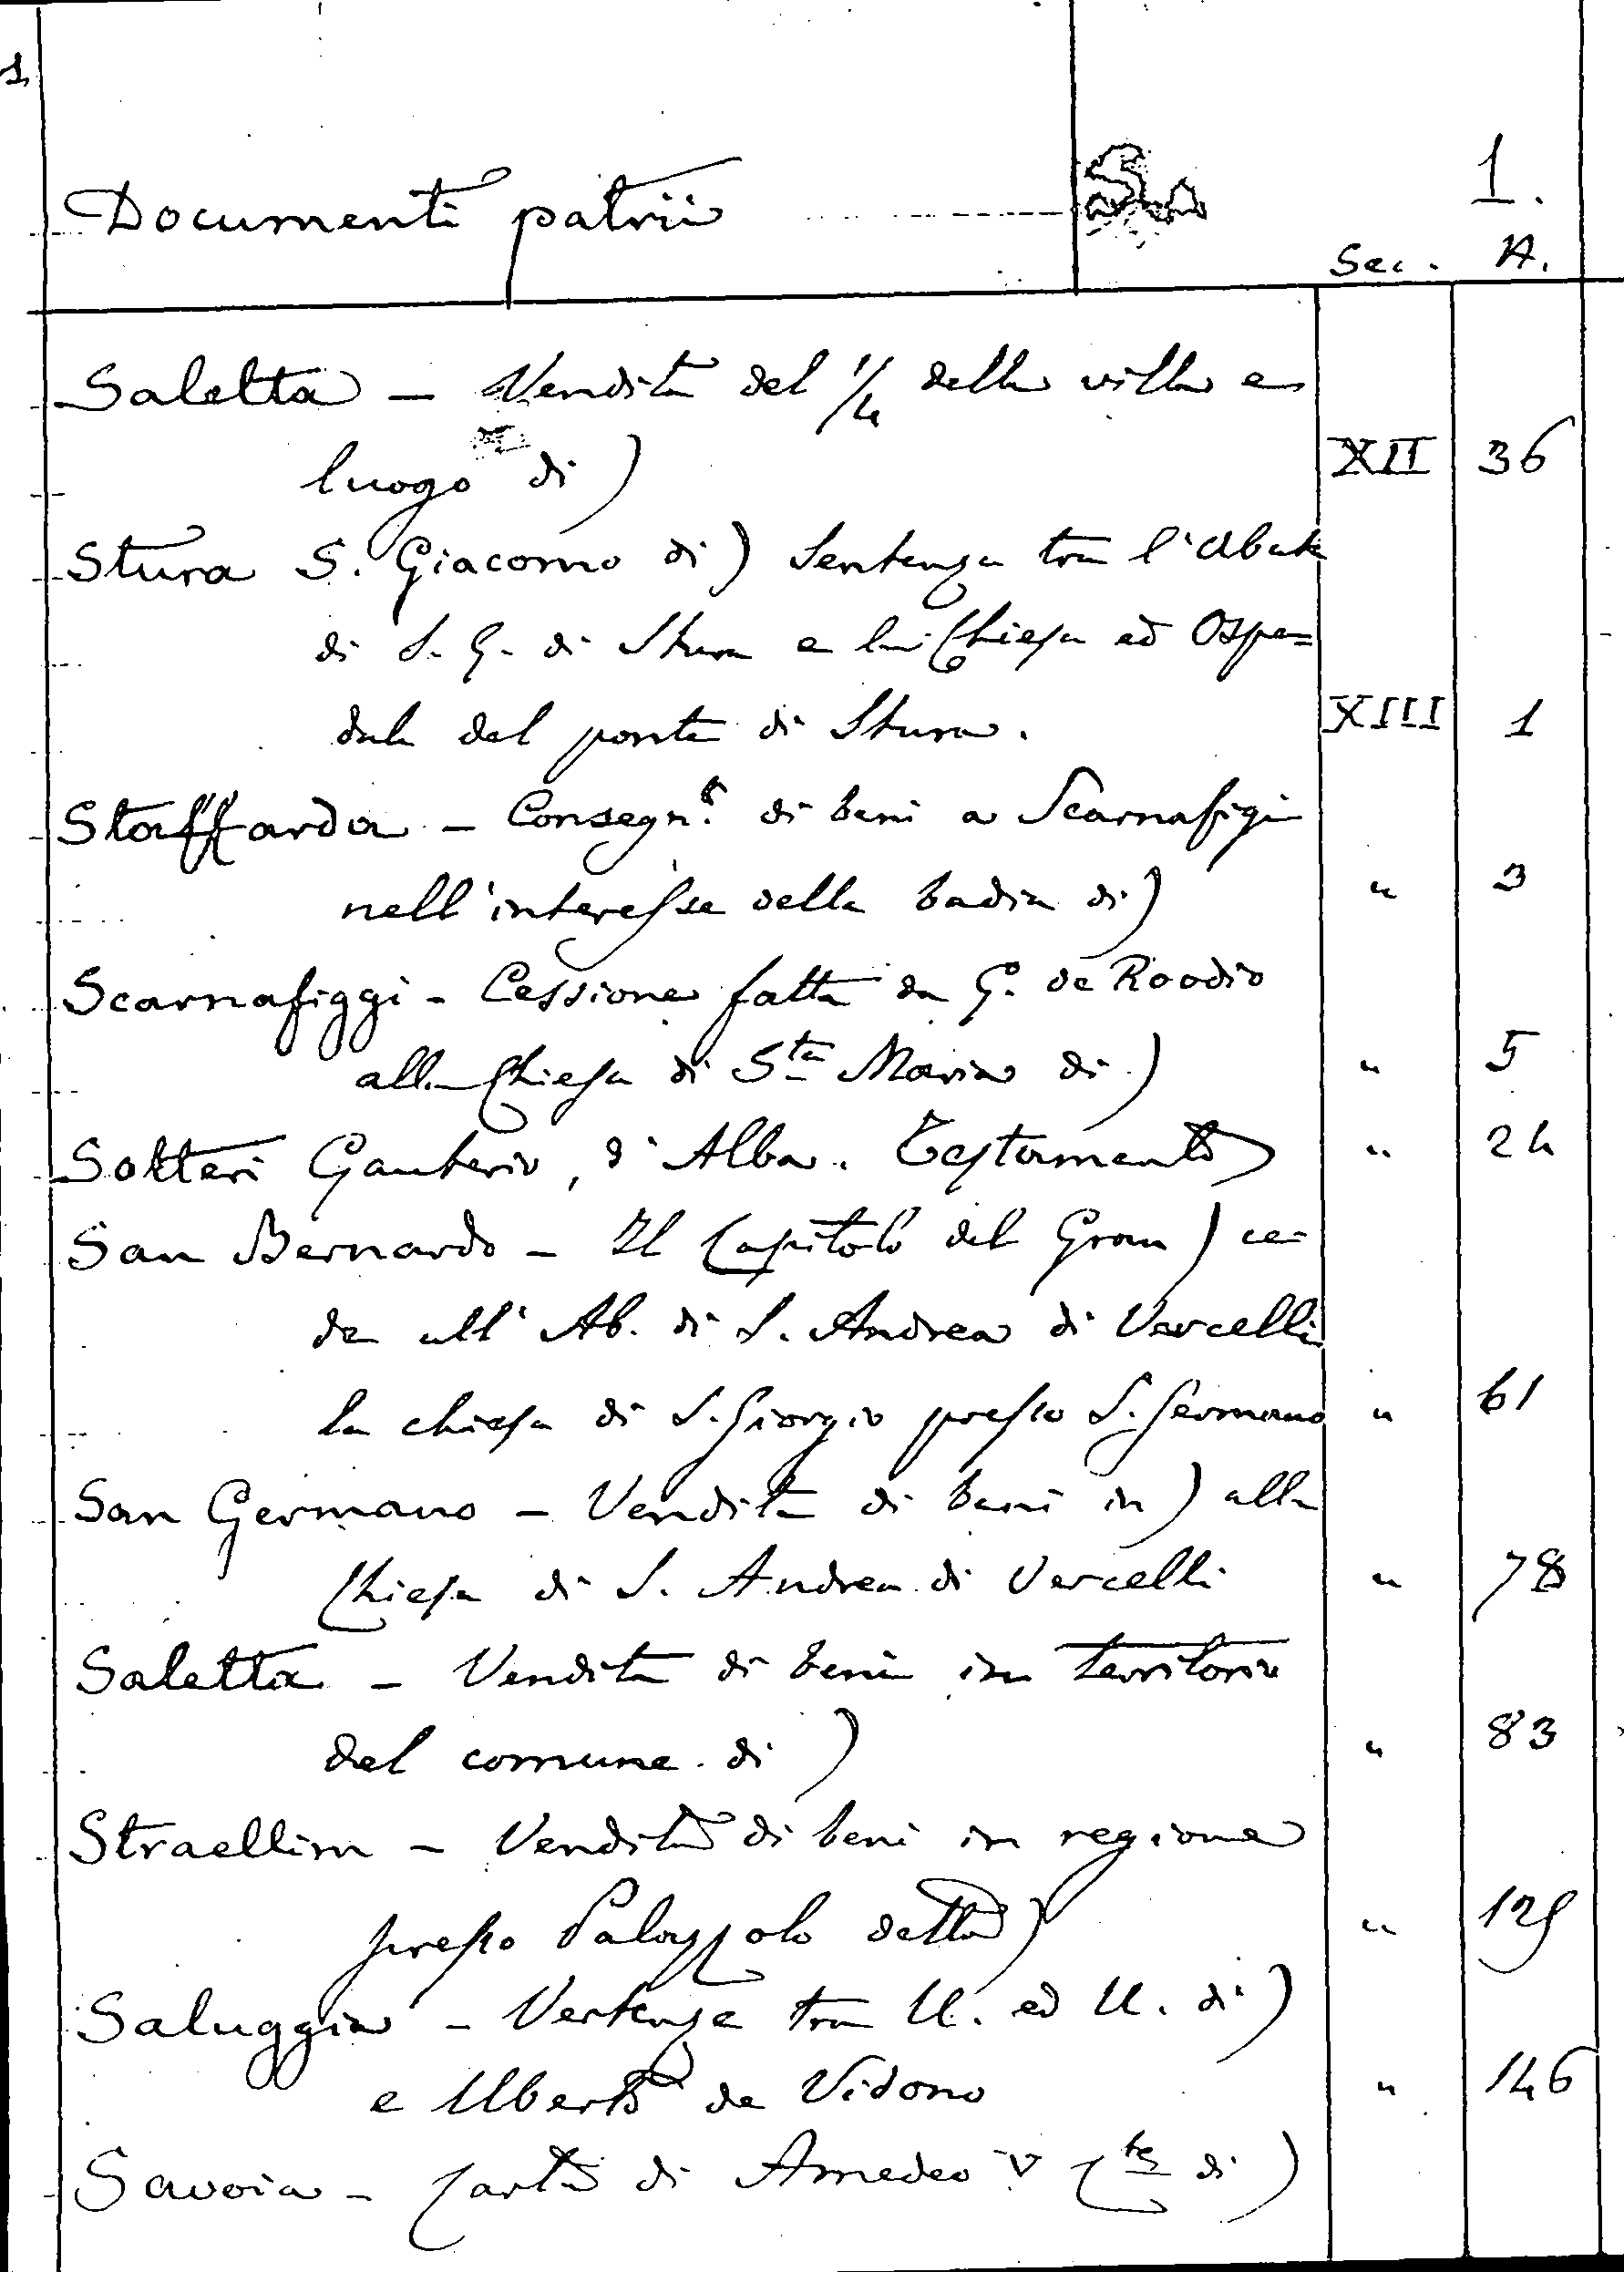 1
Documenti patrii Sa 1.
Sec. N.
Saletta — Vendita del 1/4 della villa e
luogo di) XII 36
Stura S. Giacomo di) Sentenza tra l'Abate
di S. G. di Stura e la Chiesa ed Ospe=
dale del ponte di Stura. XIII 1
Staffarda — Consegn.e di beni a Scarnafigi
nell'interesse della badia di) " 3
Scarnafiggi - Cessione fatta da G. de Roodio
alla Chiesa di Sta Maria di) " 5
Sotteri Gauterio, d'Alba. Testamento " 24
San Bernardo — Il Capitolo del Gran) ce-
de all'Ab. di S. Andrea di Vercelli
la chiesa di S. Giorgio presso S. Germano " 61
San Germano — Vendita di beni in) alla
Chiesa di S. Andrea di Vercelli " 78
Saletta — Vendita di beni in territorio
del comune di) " 83
Straellim — Vendita di beni in regione
presso Palazzolo detta) " 129
Saluggia — Vertenza tra U. ed U. di)
e Uberto de Vidono " 146
Savoia — Carta di Amedeo V Cte di)